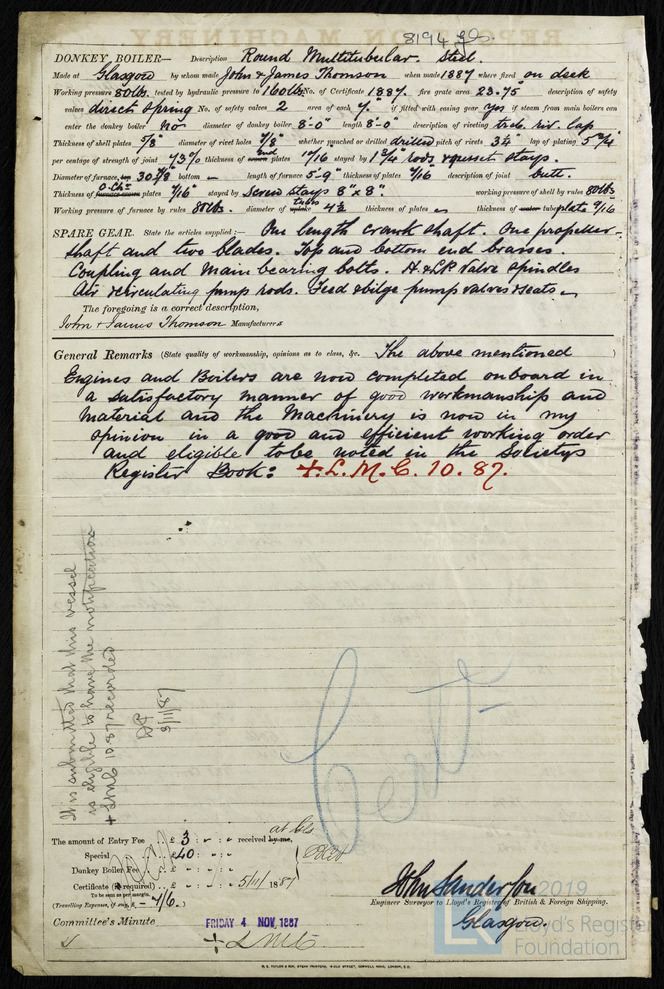 8194 gls.
DONKEY BOILER— Description Round Multitubular. Steel.
Made at Glasgow by whom made John & James Thomson when made 1887 where fixed on deck
Working pressure 80lbs. tested by hydraulic pressure to 160lbs No. of Certificate 1887. fire grate area 23.75 description of safety
valves direct spring No. of safety valves 2 area of each 7." if fitted with easing gear yes if steam from main boilers can
enter the donkey boiler No diameter of donkey boiler 8'-0" length 8'-0" description of riveting treb. riv. lap
Thickness of shell plates 5/8" diameter of rivet holes 7/8" whether punched or drilled drilled pitch of rivets 3¼ lap of plating 5¾"
per centage of strength of joint 73% thickness of end plates 11/16 stayed by 1¾" rods & gusset stays.
Diameter of furnace, top 30⅞ bottom — length of furnace 5'-9" thickness of plates 7/16 description of joint butt.
Thickness of furnace crown plates C.Chr 7/16" stayed by Screw stays 8"x8". working pressure of shell by rules 80lbs
Working pressure of furnace by rules 80lbs. diameter of tubs 4½ thickness of plates — thickness of water tube plate 9/16
SPARE GEAR. State the articles supplied:— One length crank shaft. One propeller
shaft and two blades. Top and bottom end brasses.
Coupling and Main bearing bolts. H & LP valve spindles
Air & circulating pump rods. Feed & bilge pump valves & seats —
The foregoing is a correct description,
John & James Thomson Manufacturers
General Remarks (State quality of workmanship, opinions as to class, &c. The above mentioned )
Engines and Boilers are now completed onboard in
a satisfactory manner of good workmanship and
material and the Machinery is now in my
opinion in a good and efficient working order
and eligible to be noted in the Societys
Register Book: +.L.M.C. 10.87.
It is submitted that this vessel
is eligible to have the notification
+ LMC 10.87 recorded
8/11/87
Cert
The amount of Entry Fee .. £ 3 : - : - received by me,
at Gls
Special .. £40 : - : -
Donkey Boiler Fee .. £ - : - : -
Certificate (if required) .. £ - : - : - 5/11/ 1887
To be sent as per margin.
(Travelling Expenses, if any, £ - 7/6 )
John Sanderson
Engineer Surveyor to Lloyd's Register of British & Foreign Shipping.
Glasgow.
Committee's Minute
FRIDAY 4 NOV 1887
+ LMC
2019
Lloyd's Register
Foundation